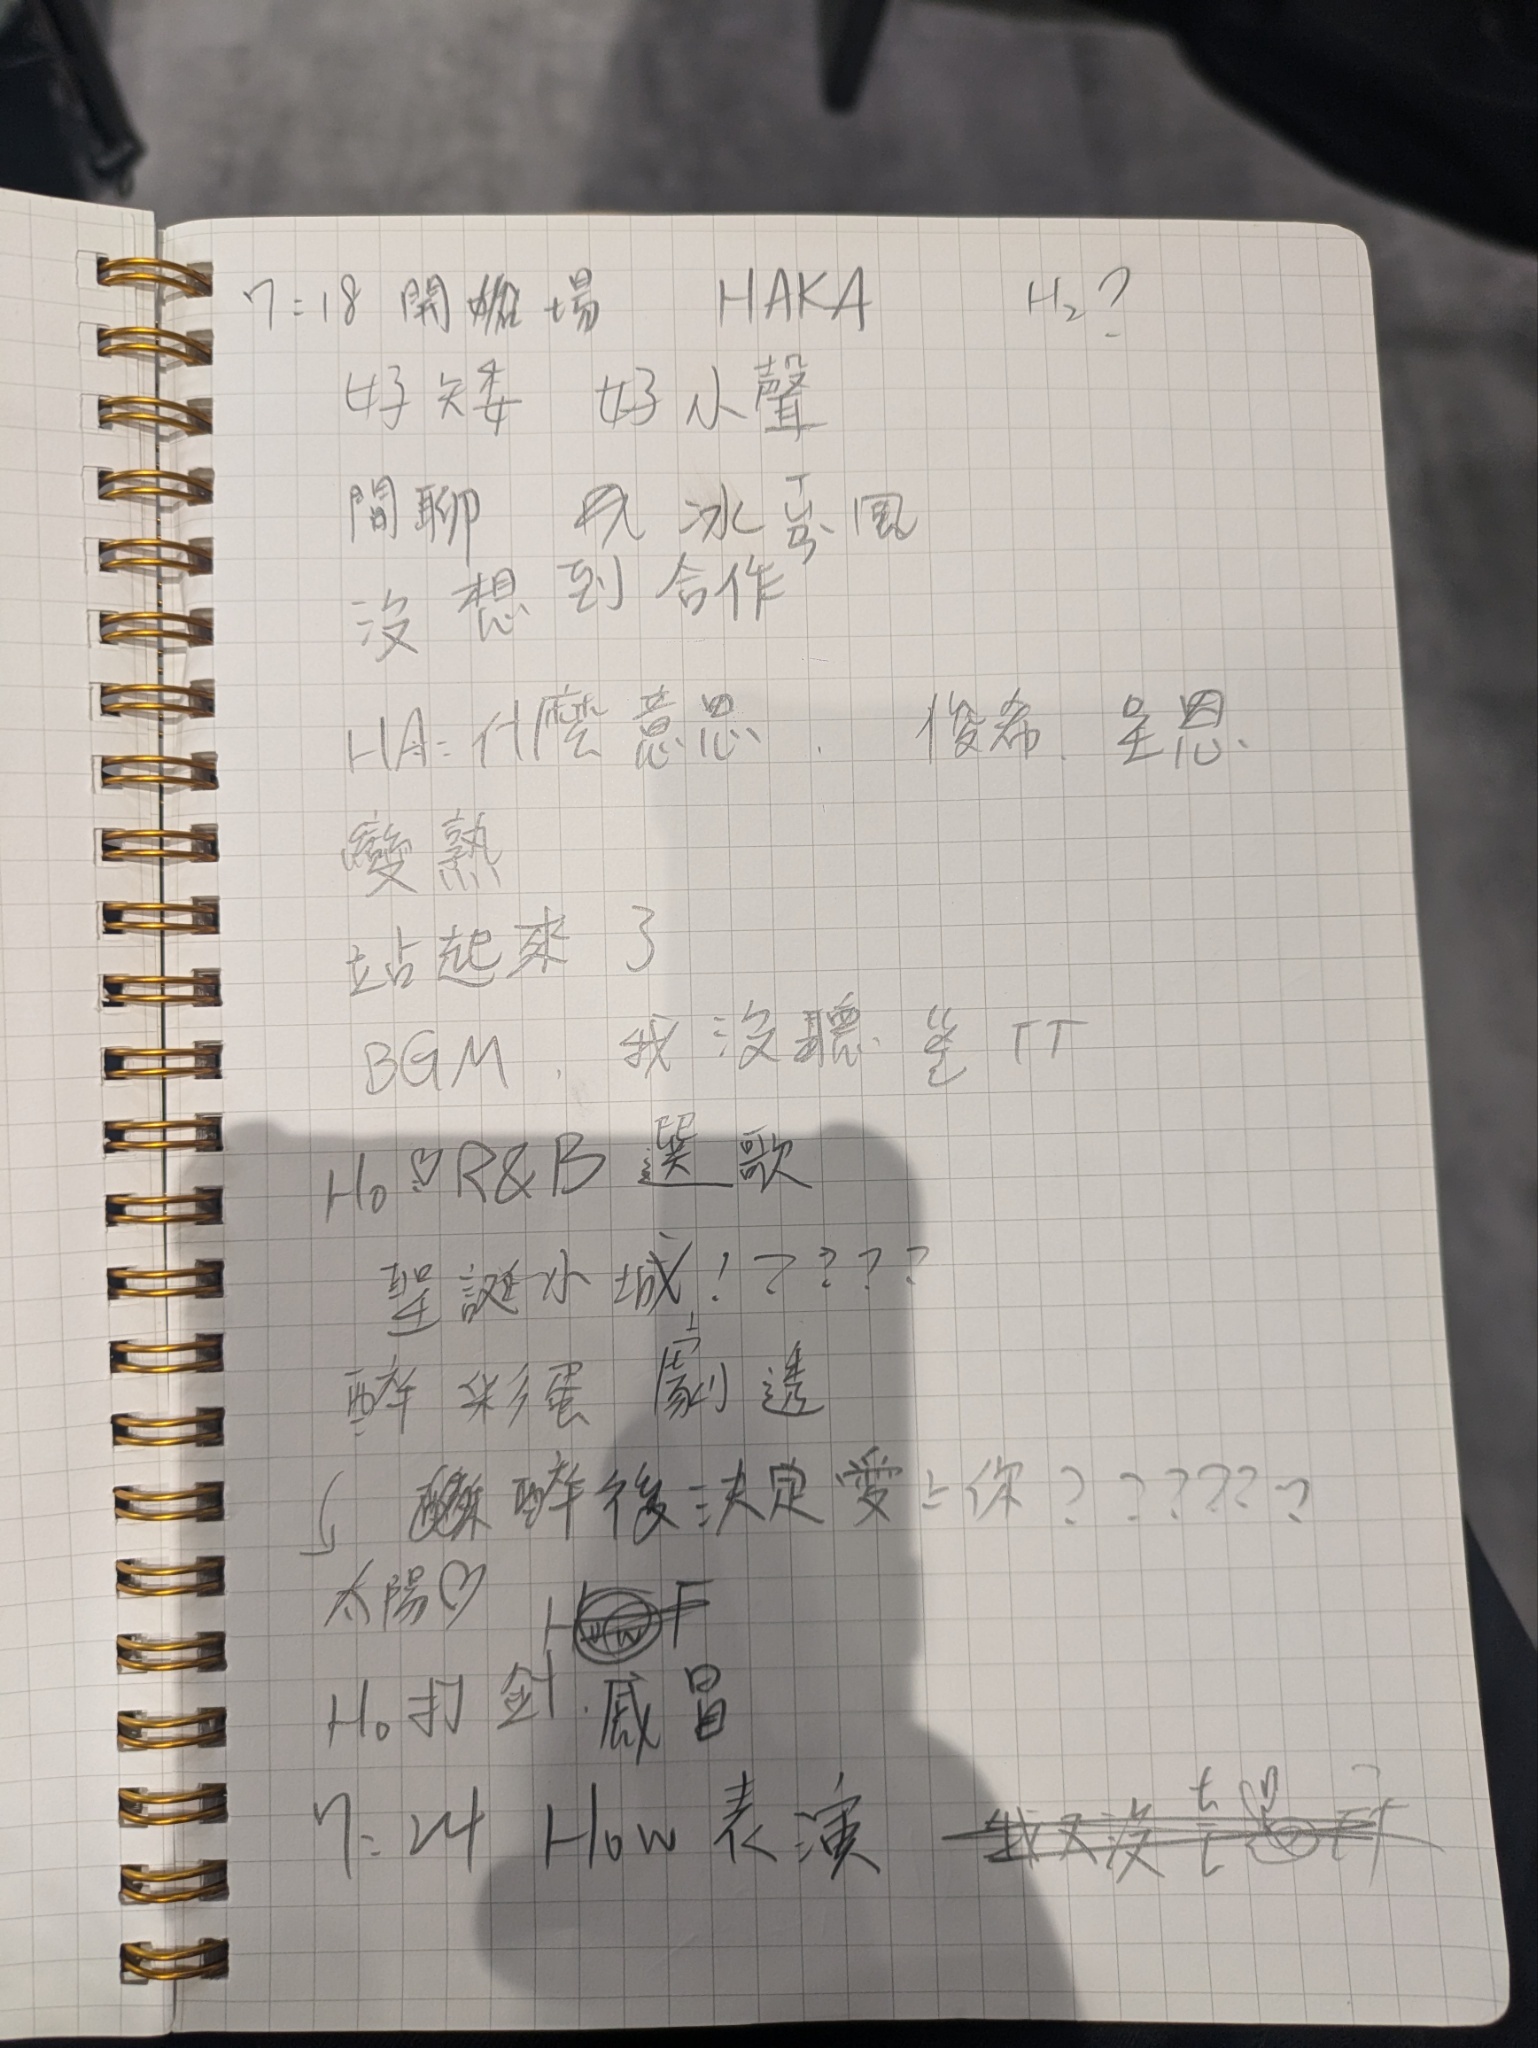 7:18 開場 HAKA H₂?
好矮 好小聲
閒聊 冰 風
沒想到合作
HA:什麼意思. 俊希. 呈恩.
變熟
站起來了
BGM. 我沒聽 TT
Ho♡R&B 選歌
聖誕小城!????
醉彩蛋 劇透
醉後決定愛上你?????
太陽♡ F
Ho打 感冒
7:24 How表演 我又沒